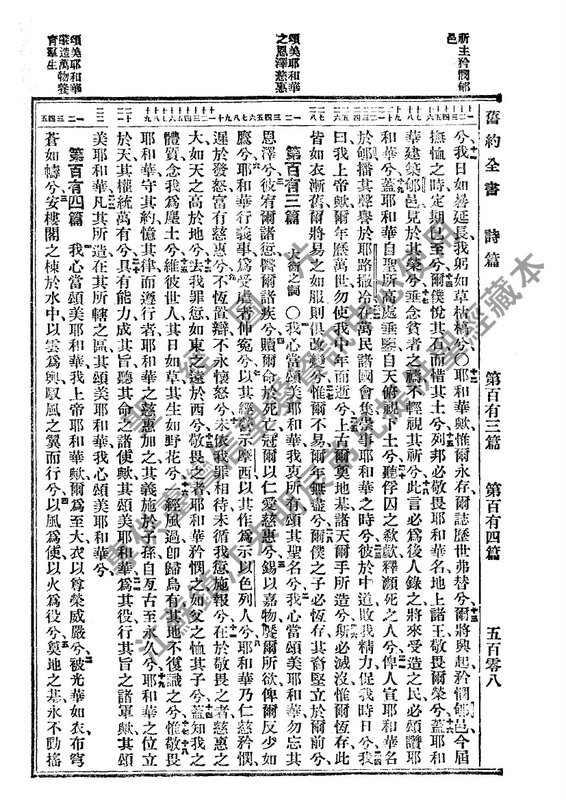 祈主矜憫郇邑
頌美耶和華之恩澤慈惠
頌美耶和華肇造萬物養育羣生
舊約全書 詩篇 第百有三篇 第百有四篇 五百零八
兮我日如晷延長我躬如草枯槁兮〇耶和華歟惟爾永存爾誌歷世弗替兮爾將興起矜憫郇邑今屆
撫恤之時定期已至兮爾僕悅其石而惜其土兮列邦必敬畏耶和華名地上諸王敬畏爾榮兮蓋耶和
華建築郇邑見於其榮兮垂念貧者之禱不輕視其祈兮此言必為後人錄之將來受造之民必頌讚耶
和華兮蓋耶和華自聖所高處垂鑒自天俯視下土兮聽俘囚之欷歔釋瀕死之人兮俾人宣耶和華名
於郇播其聲譽於耶路撒冷在萬民諸國會集崇事耶和華之時兮彼於中道敗我精力促我時日兮我
曰我上帝歟爾年歷萬世勿使我中年而逝兮上古爾奠地基諸天爾手所造兮必滅沒惟爾恆存此
皆如衣漸舊爾將易之如服則俱改變兮惟爾不易爾年無盡兮爾僕之子必恆存其裔堅立於爾前兮
第百有三篇 大衛之詞 〇我心當頌美耶和華我衷所有頌其聖名兮我心當頌美耶和華勿忘其
恩澤兮彼宥爾諸愆醫爾諸疾兮贖爾命於死亡冠爾以仁愛慈惠兮錫以嘉物饜爾所欲俾爾反少如
鷹兮耶和華行義事為受虐者伸冤兮以其經營示摩西以其作為示以色列人兮耶和華乃仁慈矜憫
遲於發怒富有慈惠兮不恆置辯不永懷怒兮未依我罪相待未循我愆施報兮在於敬畏之者慈惠之
大如天之高於地兮去我罪愆如東之遠於西兮敬畏之者耶和華矜憫之如父之恤其子兮蓋知我之
體質念我為塵土兮維彼世人其日如草其生如野花兮經風過卽歸烏有其地不復識之兮惟敬畏
耶和華守其約憶其律而遵行者耶和華之慈惠加之其義施於子孫自亙古至永久兮耶和華之位立
於天其權統萬有兮具有能力成其旨聽其命之諸使歟其頌美耶和華為其役行其旨之諸軍歟其頌
美耶和華凡其所造在其所轄之區其頌美耶和華我心頌美耶和華兮
第百有四篇 我心當頌美耶和華我上帝耶和華歟爾為至大衣以尊榮威嚴兮被光華如衣布穹
蒼如幬兮安樓閣之棟於水中以雲為輿馭風之翼而行兮以風為使以火為役兮奠地之基永不動搖